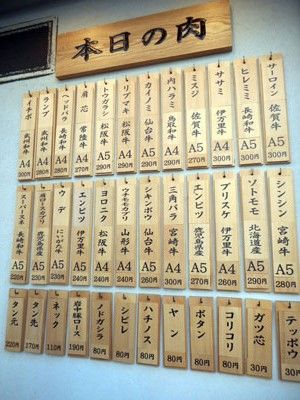 本日の肉
サーロイン 佐賀牛 A5 300円
ヒレミミ 長崎和牛 A5 300円
ササミ 伊万里牛 A4 300円
ミスジ 佐賀牛 A5 270円
内ハラミ 鳥取和牛 A5 290円
カイノミ 仙台牛 A5 290円
リブマキ 松阪牛 A5 290円
トウガラシ 松阪牛 A5 290円
肩芯 常陸牛 A4 270円
ヘッドバラ 長崎和牛 A4 280円
ランプ 武州和牛 A4 280円
イチボ 武州和牛 A4 300円
シンシン 宮崎牛 A5 280円
ソトモモ 北海道産 A5 210円
ブリスケ 伊万里牛 A4 260円
エンピツ 鹿児島県産 A5 270円
三角バラ 宮崎牛 A4 300円
シキンボウ 仙台牛 A5 260円
ウチモモカブリ 山形牛 A4 240円
ヨロニク 松阪牛 A4 240円
エンピツ 伊万里牛 A4 270円
ウデ A5 230円
鹿児島県産 A5 230円
長崎和牛 A5 220円
テッポウ 30円
ガツ芯 30円
コリコリ 80円
ボタン 80円
ヤン 80円
ハチノス 80円
シビレ 80円
ノドガシラ 80円
岩中豚ロース 190円
ネック 110円
タン先 170円
タン元 220円